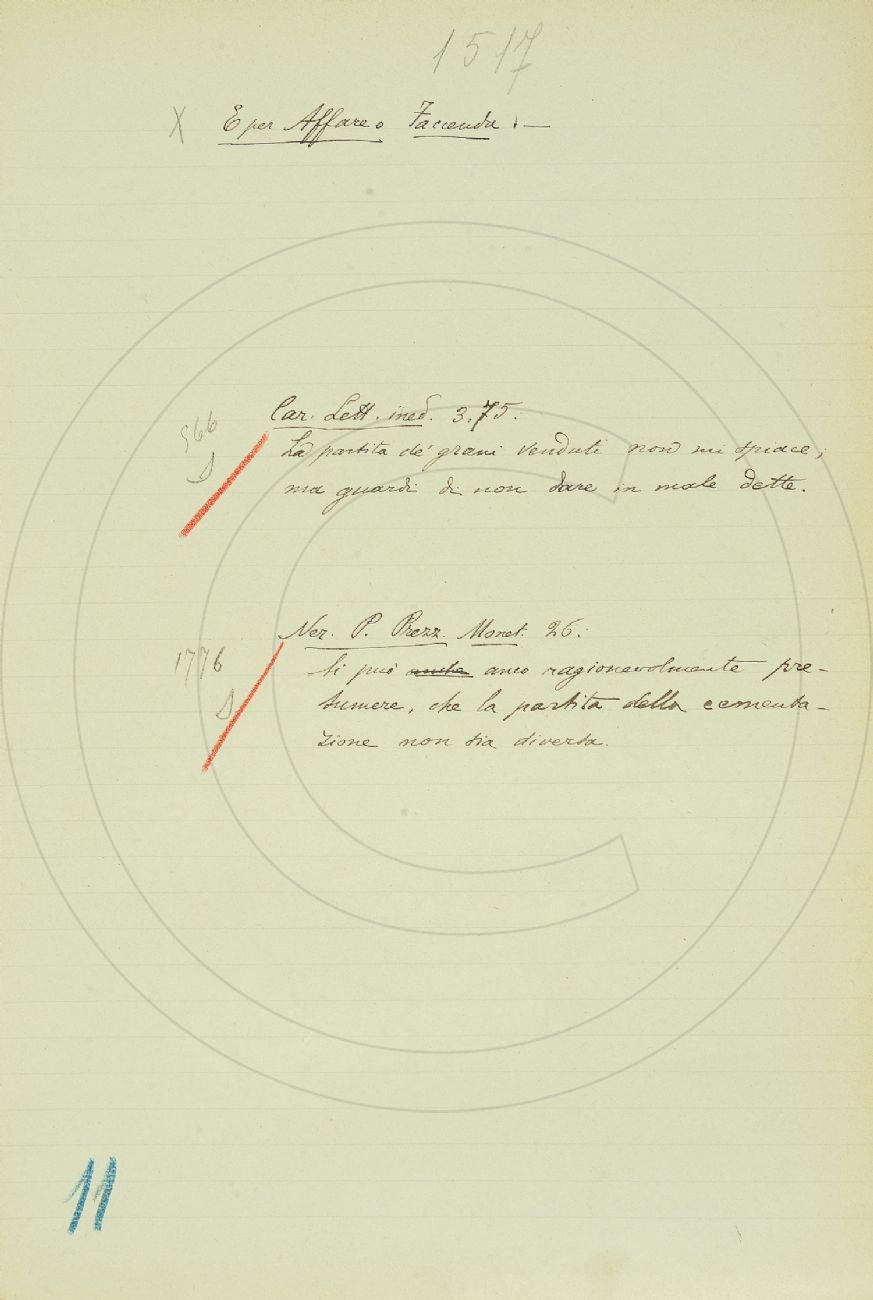 1517
X E per Affare o Faccenda : —
Car. Lett. ined. 3,75:
566
La partita de' grani venduti non mi spiace;
D
ma guardi di non dare in male dette.
Ner. P. Prezz. Monet. 26:
1776
Si può anche anco ragionevolmente pre-
D
sumere, che la partita della cementa-
zione non sia diversa.
11